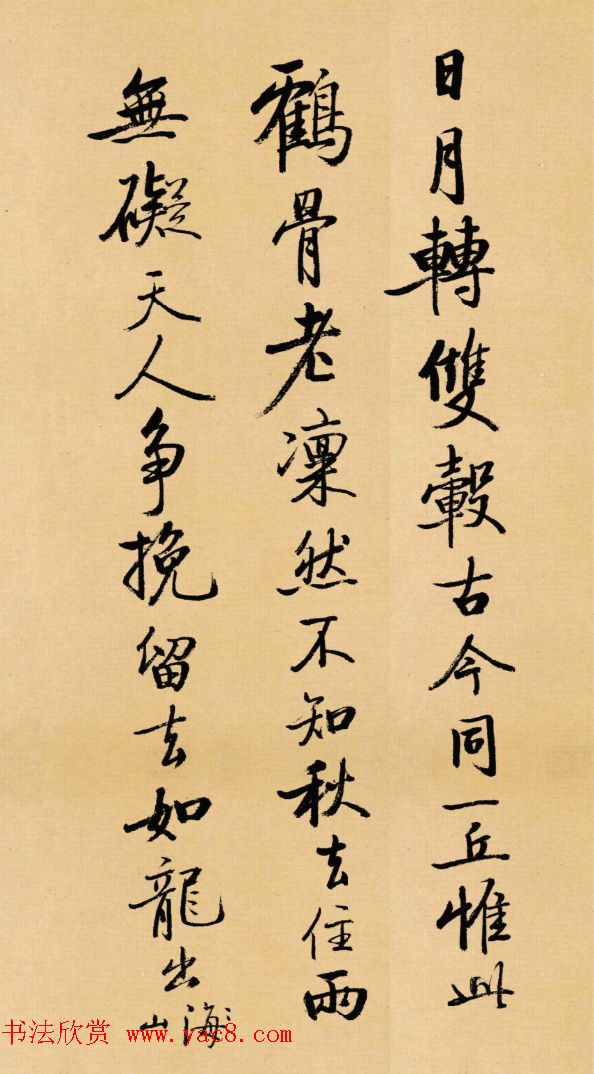 日月轉雙轂古今同一丘惟此
鶴骨老凜然不知秋去住兩
無礙天人争挽留去如龍出山海
书法欣赏 www.yac8.com